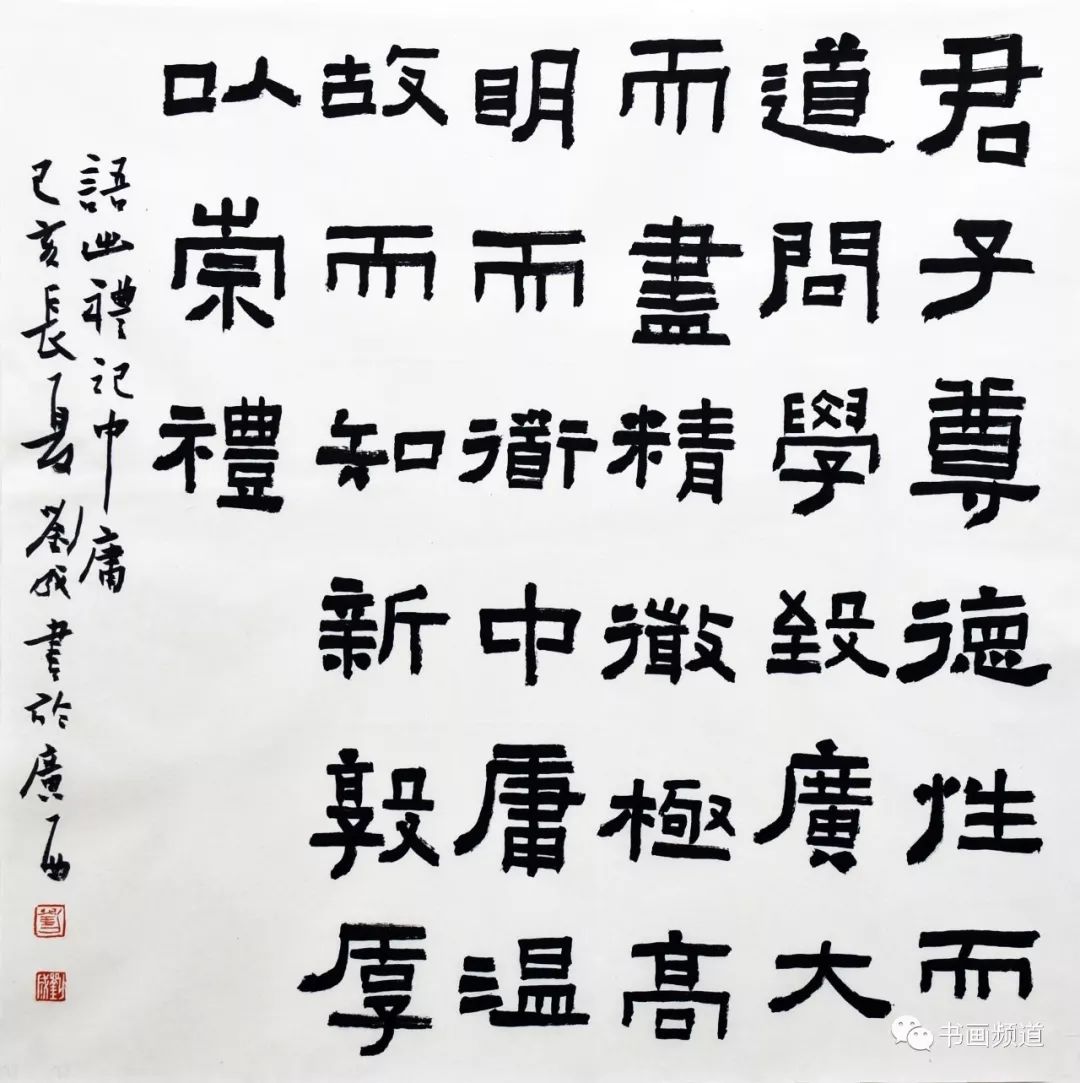 君子尊德性而
道問學致廣大
而盡精微極高
明而衜中庸温
故而知新敦厚
以崇禮
語出禮記中庸
己亥長夏劉成書於廣西
劉成
书画频道